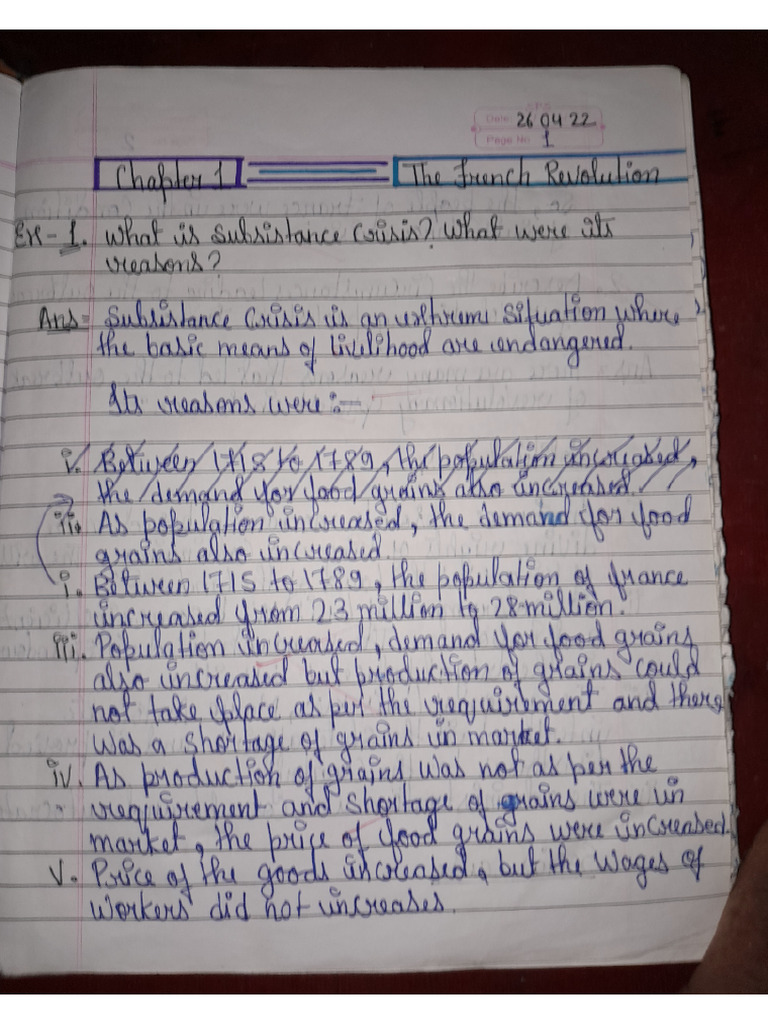 Date 26 04 22
Page No 1
Chapter 1 The French Revolution
Ex-1. What is Subsistance Crisis? What were its
reasons?
Ans= Subsistance Crisis is an extreme situation where
the basic means of livelihood are endangered.
Its reasons were:-
i. Between 1718 to 1789, the population increased,
the demand for food grains also increased.
ii. As population increased, the demand for food
grains also increased.
i. Between 1715 to 1789, the population of france
increased from 23 million to 28 million.
iii. Population increased, demand for food grains
also increased but production of grains could
not take place as per the requirement and there
was a shortage of grains in market.
iv. As production of grains was not as per the
requirement and shortage of grains were in
market, the price of food grains were increased.
v. Price of the goods increased, but the wages of
workers did not increases.